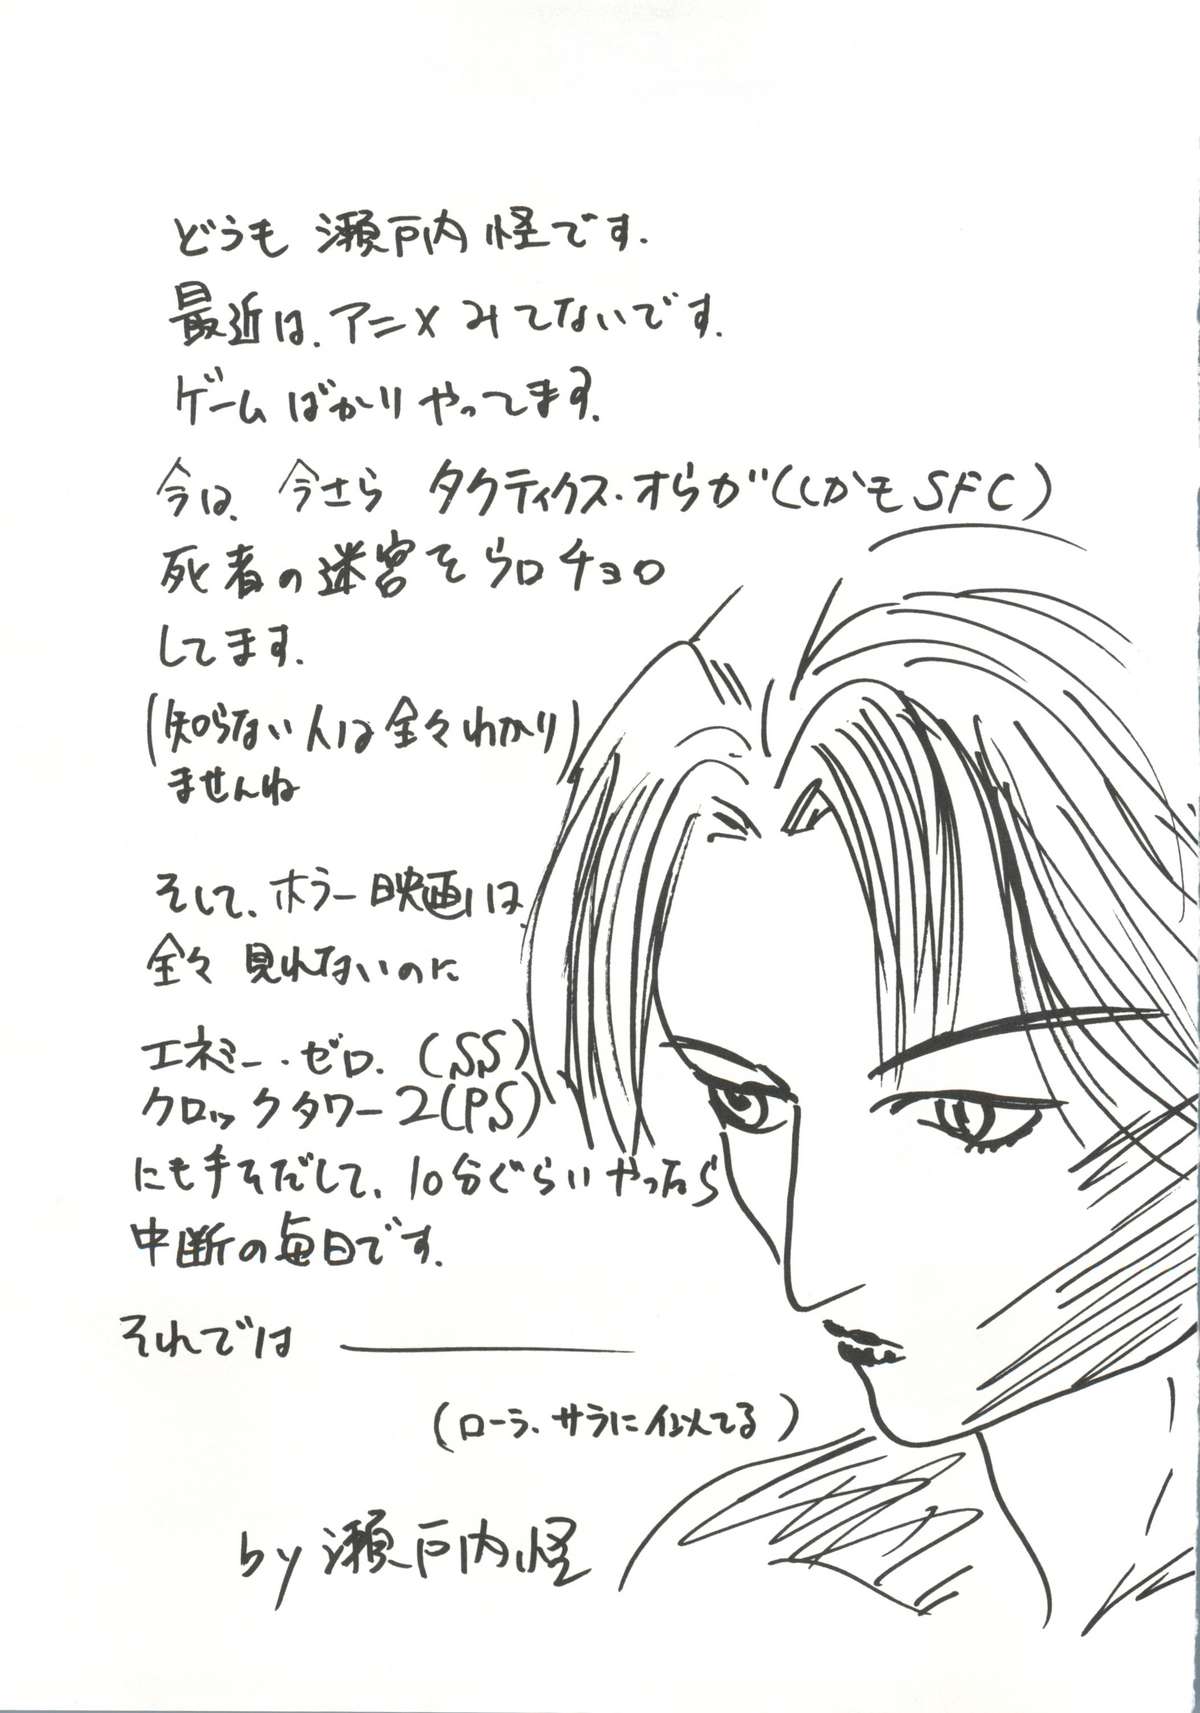 どうも 瀬戸内 怪です.
最近は、アニメ みてないです.
ゲームばかりやってます.
今は、今さら タクティクス・オらガ(しかもSFC)
死者の迷宮をウロチョロ
してます.
(知らない人は全々わかり)
ませんね
そして、ホラー映画は、
全々 見れないのに
エネミー・ゼロ.(SS)
クロックタワー2(PS)
にも手をだして、10分ぐらいやったら
中断の毎日です.
それでは
(ローラ、サラに似てる)
by 瀬戸内怪